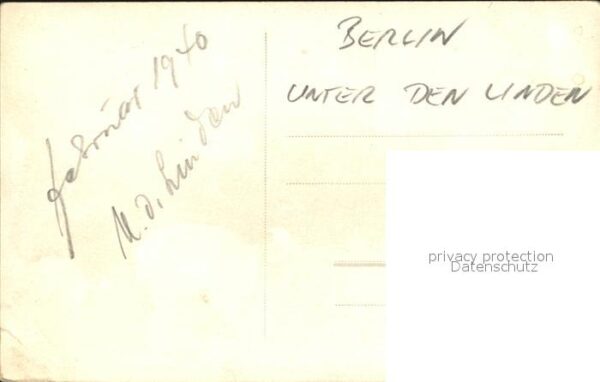 Februar 1940
U. d. Linden
BERLIN
UNTER DEN LINDEN
privacy protection
Datenschutz